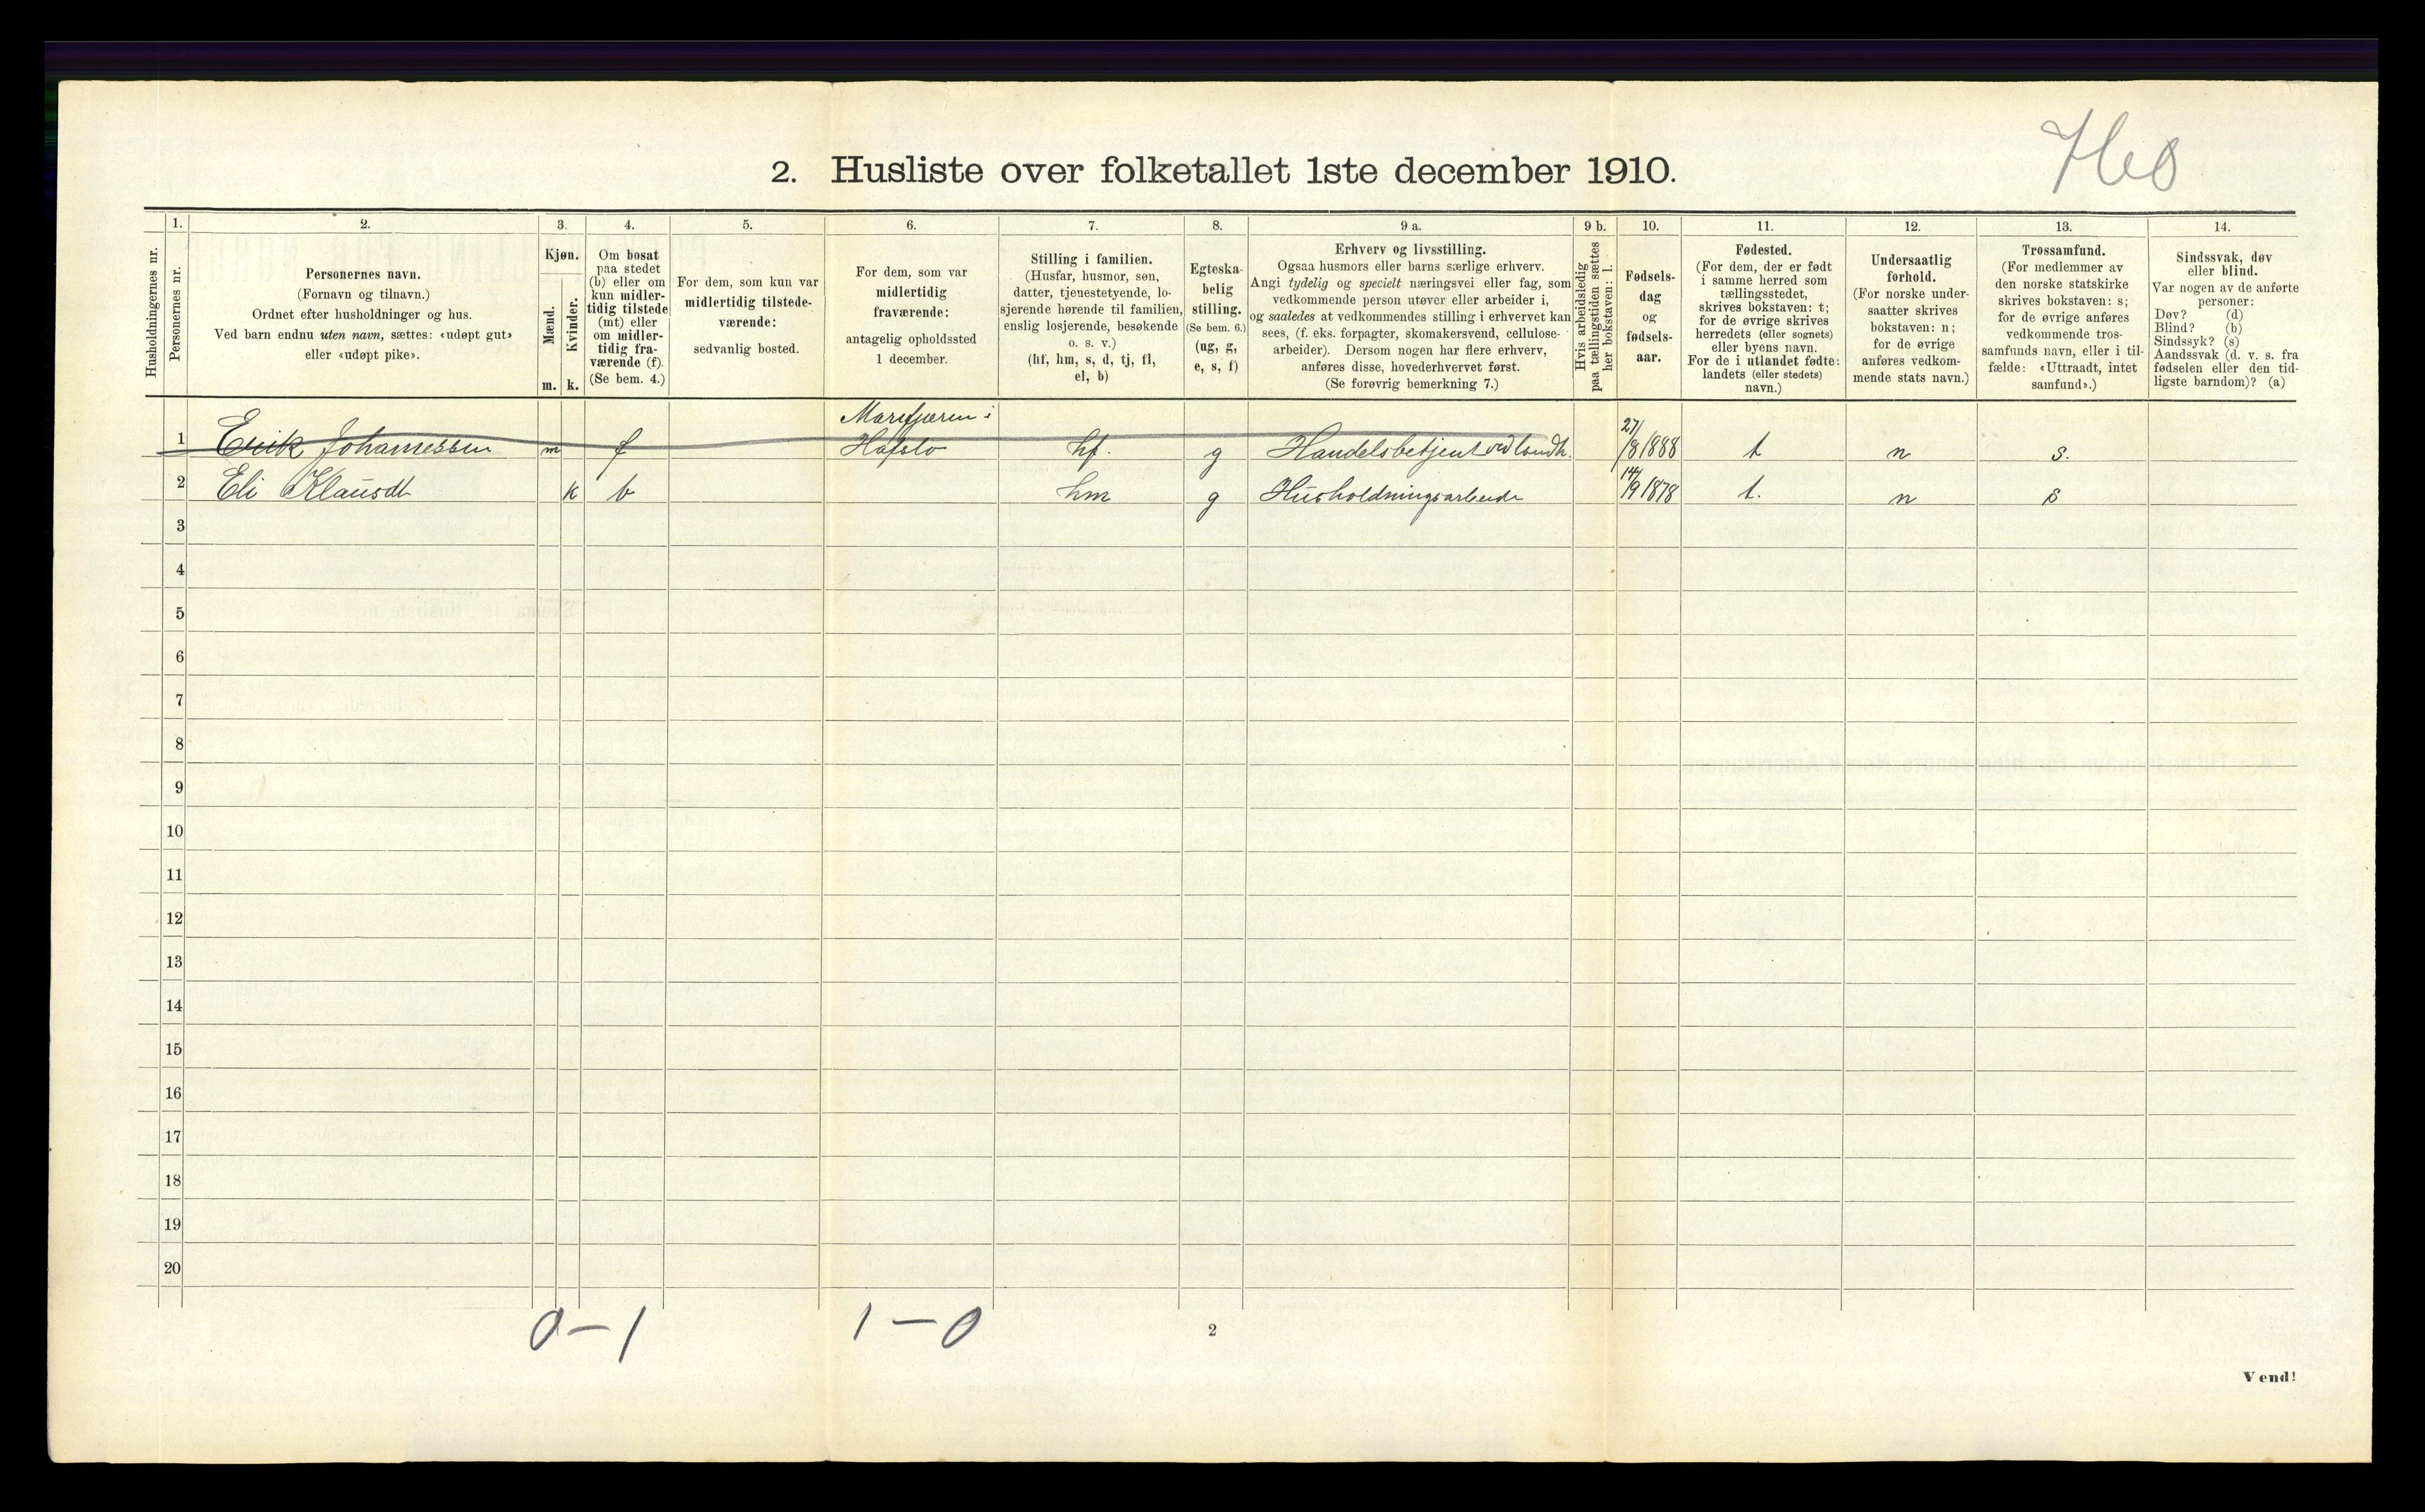 2. Husliste over folketallet 1ste december 1910.
Husholdningernes nr.
1.
Personernes nr.
2.
Personernes navn.
(Fornavn og tilnavn.)
Ordnet efter husholdninger og hus.
Ved barn endnu uten navn, sættes: «udøpt gut»
eller «udøpt pike».
3.
Kjøn.
Mænd.
Kvinder.
m. k.
4.
Om bosat
paa stedet
(b) eller om
kun midler-
tidig tilstede
(mt) eller
om midler-
tidig fra-
værende (f).
(Se bem. 4.)
5.
For dem, som kun var
midlertidig tilstede-
værende:
sedvanlig bosted.
6.
For dem, som var
midlertidig
fraværende:
antagelig opholdssted
1 december.
7.
Stilling i familien.
(Husfar, husmor, søn,
datter, tjenestetyende, lo-
sjerende hørende til familien,
enslig losjerende, besøkende
o. s. v.)
(hf, hm, s, d, tj, fl,
el, b)
8.
Egteska-
belig
stilling.
(Se bem. 6.)
(ug, g,
e, s, f)
9 a.
Erhverv og livsstilling.
Ogsaa husmors eller barns særlige erhverv.
Angi tydelig og specielt næringsvei eller fag, som
vedkommende person utøver eller arbeider i,
og saaledes at vedkommendes stilling i erhvervet kan
sees, (f. eks. forpagter, skomakersvend, cellulose-
arbeider). Dersom nogen har flere erhverv,
anføres disse, hovederhvervet først.
(Se forøvrig bemerkning 7.)
9 b.
Hvis arbeidsledig
paa tællingstiden sættes
her bokstaven: l.
10.
Fødsels-
dag
og
fødsels-
aar.
11.
Fødested.
(For dem, der er født
i samme herred som
tællingsstedet,
skrives bokstaven: t;
for de øvrige skrives
herredets (eller sognets)
eller byens navn.
For de i utlandet fødte:
landets (eller stedets)
navn.)
12.
Undersaatlig
forhold.
(For norske under-
saatter skrives
bokstaven: n;
for de øvrige
anføres vedkom-
mende stats navn.)
13.
Trossamfund.
(For medlemmer av
den norske statskirke
skrives bokstaven: s;
for de øvrige anføres
vedkommende tros-
samfunds navn, eller i til-
fælde: «Uttraadt, intet
samfund».)
14.
Sindssvak, døv
eller blind.
Var nogen av de anførte
personer:
Døv? (d)
Blind? (b)
Sindssyk? (s)
Aandssvak (d. v. s. fra
fødselen eller den tid-
ligste barndom)? (a)
Marifjæren i
1 Erik Johannessen m f Hafslo hf. g Handelsbetjent ved landh. 27/8 1888 t n s.
2 Eli Klausdt k b hm g Husholdningsarbeide 14/9 1878 t. n s
3
4
5
6
7
8
9
10
11
12
13
14
15
16
17
18
19
20
0-1 1-0
2
Vend!